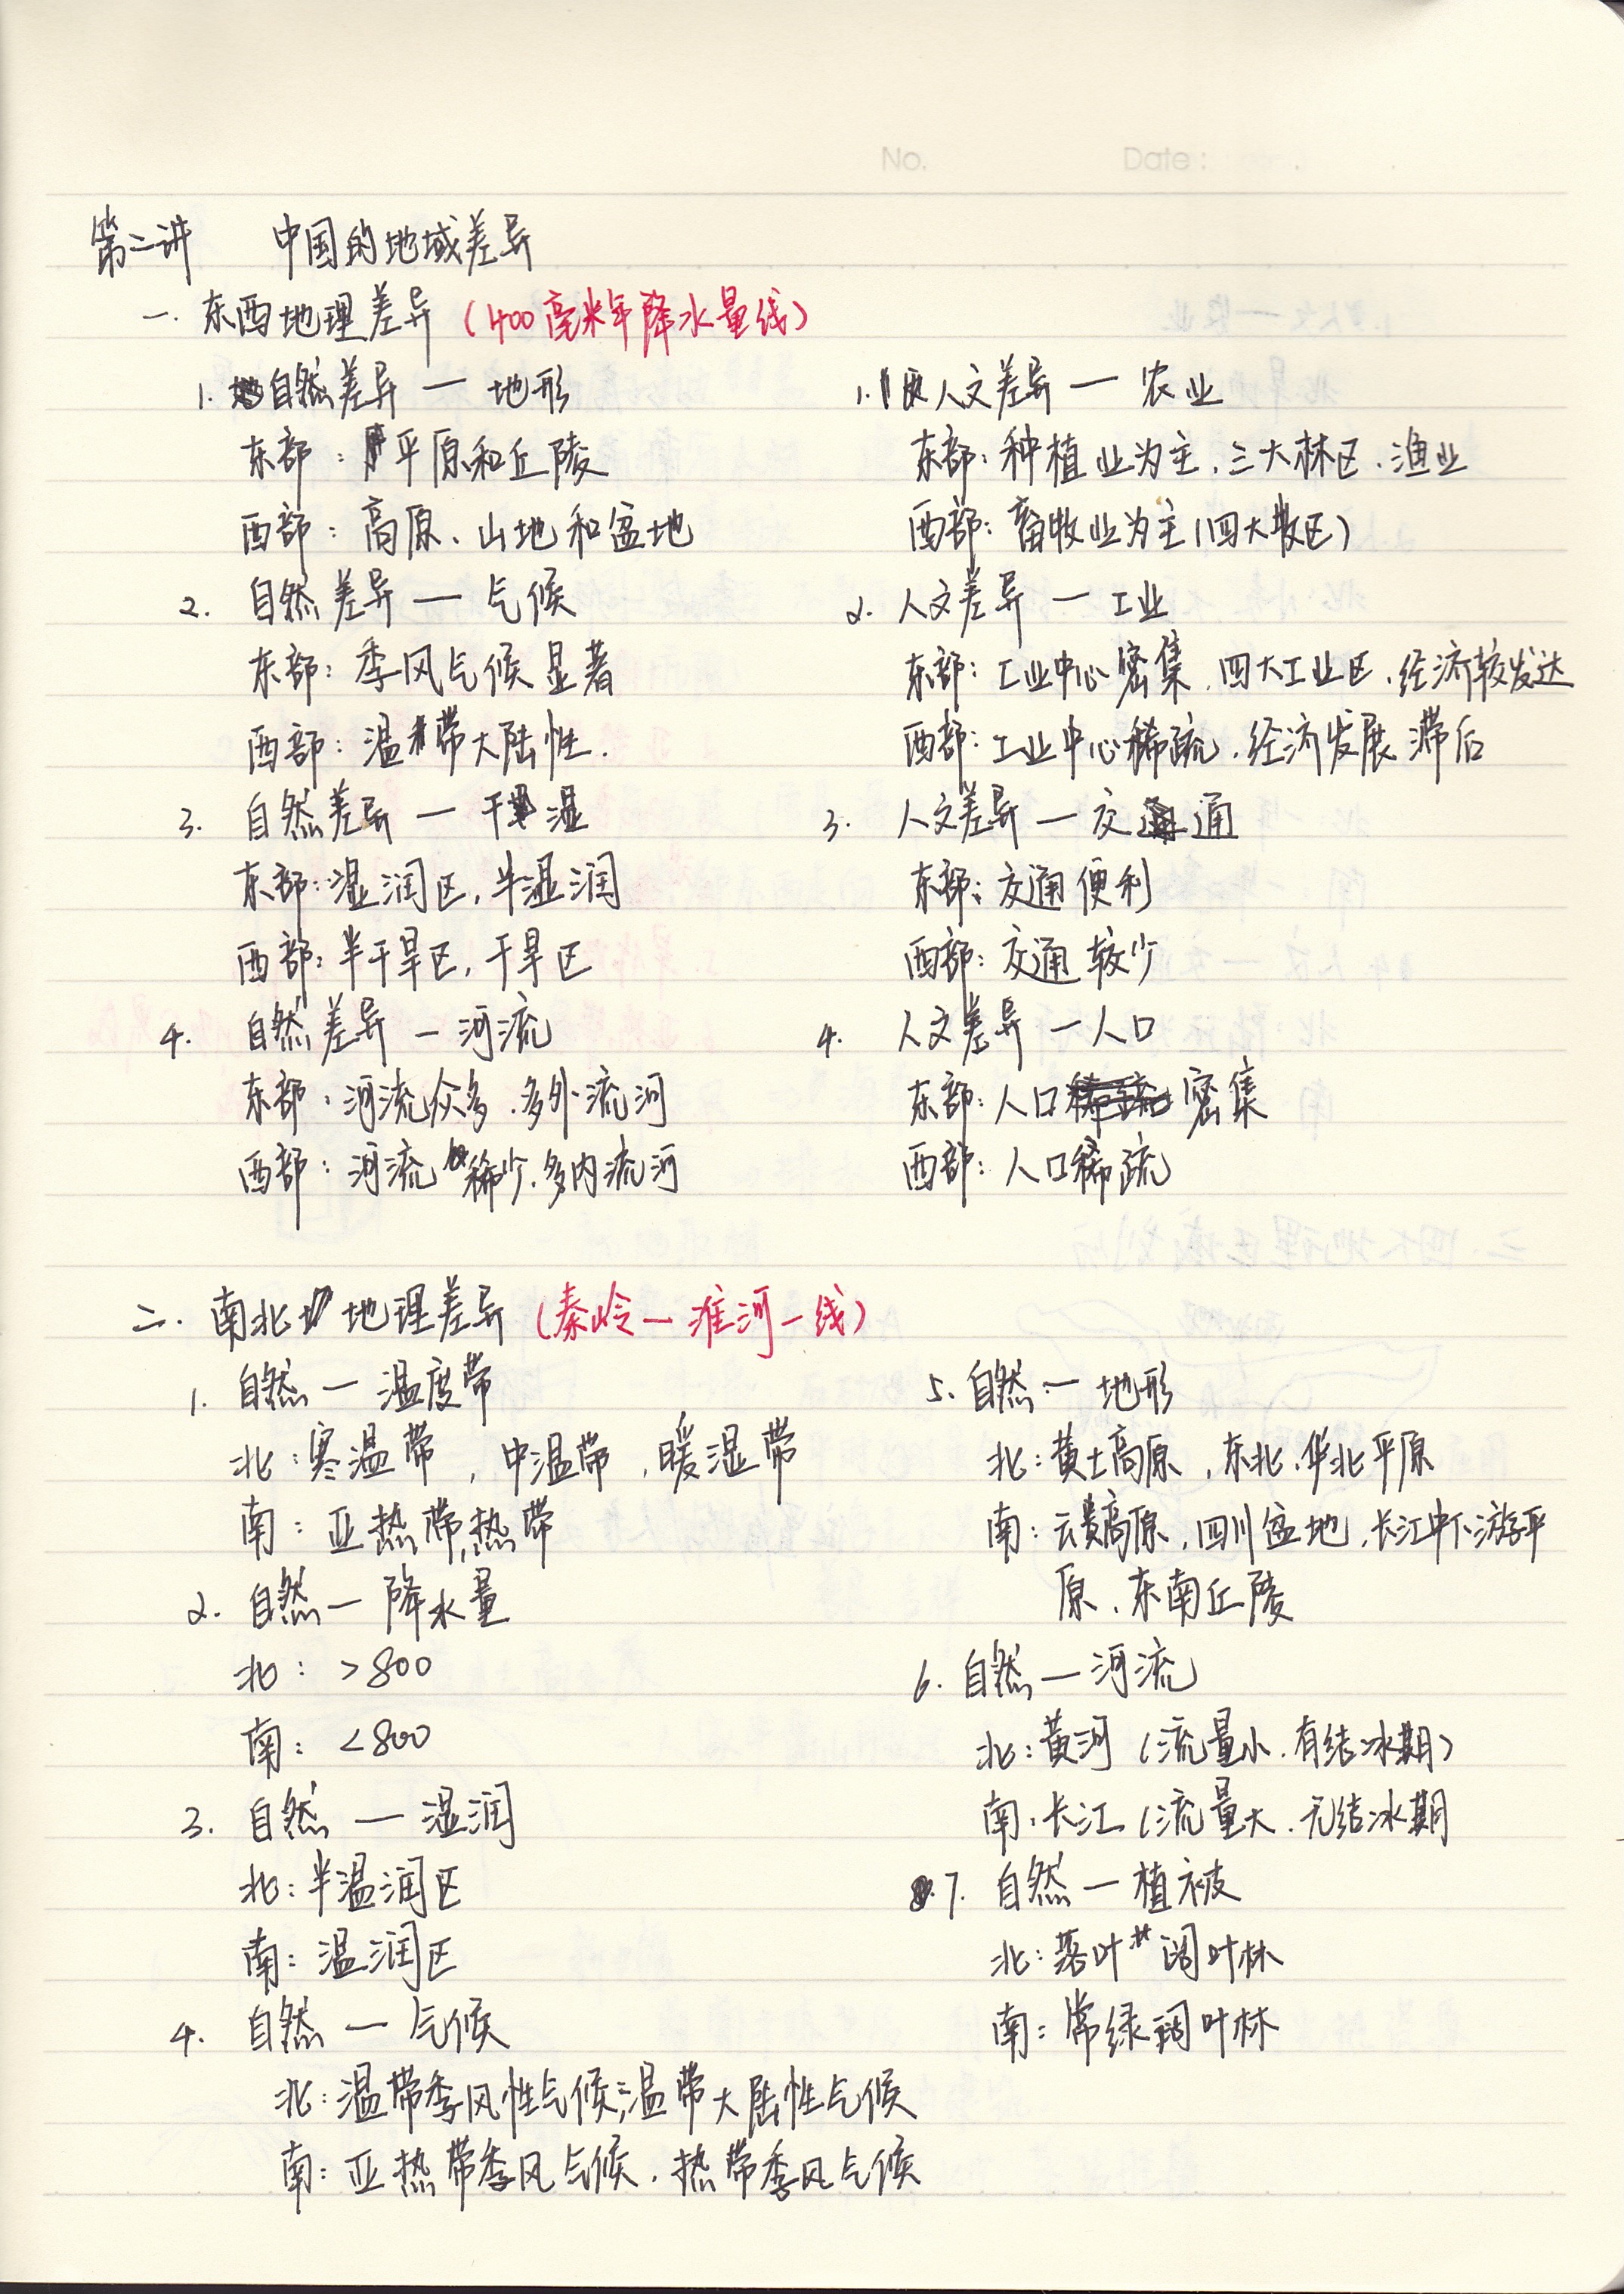 No. Date:
第二讲 中国的地域差异
一. 东西地理差异 (400毫米年降水量线)
1. 自然差异 — 地形
东部: 平原和丘陵
西部: 高原、山地和盆地
2. 自然差异 — 气候
东部: 季风气候显著
西部: 温带大陆性.
3. 自然差异 — 干湿
东部: 湿润区, 半湿润
西部: 半干旱区, 干旱区
4. 自然差异 — 河流
东部: 河流众多、多外流河
西部: 河流稀少、多内流河
1. 人文差异 — 农业
东部: 种植业为主、三大林区、渔业
西部: 畜牧业为主(四大牧区)
2. 人文差异 — 工业
东部: 工业中心密集、四大工业区、经济较发达
西部: 工业中心稀疏、经济发展滞后
3. 人文差异 — 交通
东部: 交通便利
西部: 交通较少
4. 人文差异 — 人口
东部: 人口密集
西部: 人口稀疏
二. 南北地理差异 (秦岭—淮河一线)
1. 自然 — 温度带
北: 寒温带, 中温带, 暖湿带
南: 亚热带, 热带
2. 自然 — 降水量
北: >800
南: <800
3. 自然 — 湿润
北: 半温润区
南: 温润区
4. 自然 — 气候
北: 温带季风性气候; 温带大陆性气候
南: 亚热带季风气候、热带季风气候
5. 自然 — 地形
北: 黄土高原、东北、华北平原
南: 云贵高原、四川盆地、长江中下游平
原、东南丘陵
6. 自然 — 河流
北: 黄河 (流量小、有结冰期)
南: 长江 (流量大、无结冰期
7. 自然 — 植被
北: 落叶阔叶林
南: 常绿阔叶林